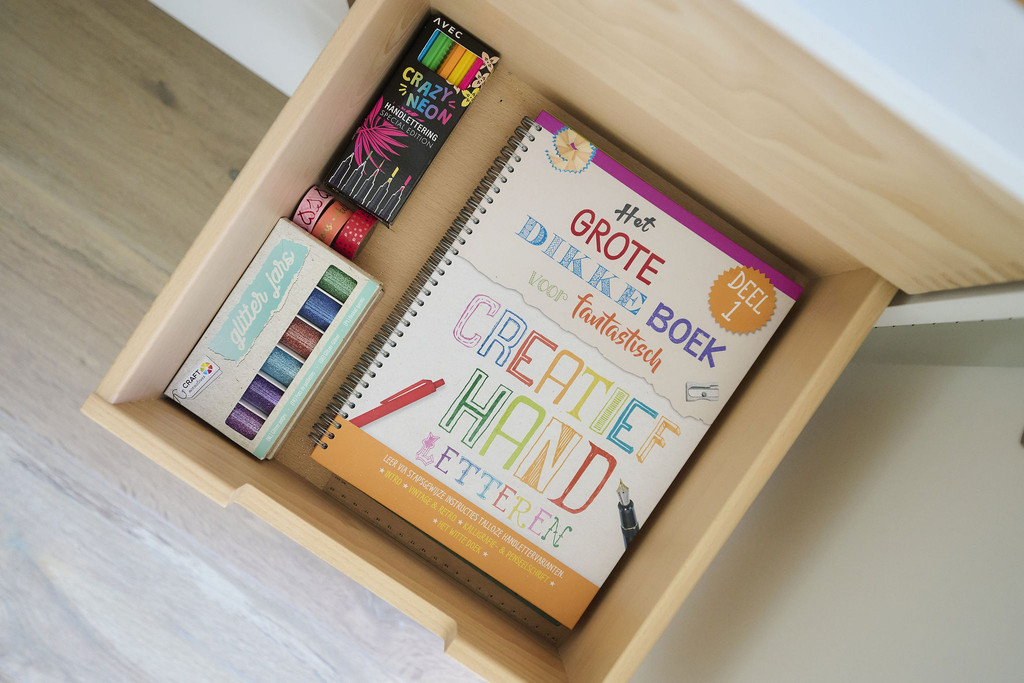 AVEC
CRAZY
NEON
HANDLETTERING
SPECIAL EDITION
glitter jars
CRAFT
Het
GROTE
DIKKE BOEK
voor fantastisch
DEEL
1
CREATIEF
HAND
LETTEREN
LEER VIA STAPSGEWIJZE INSTRUCTIES TALLOZE HANDLETTERVARIANTEN
★ INTRO ★ VINTAGE & RETRO ★ KALLIGRAFIE- & PENSEELSCHRIFT ★
★ HET WITTE BOEK ★